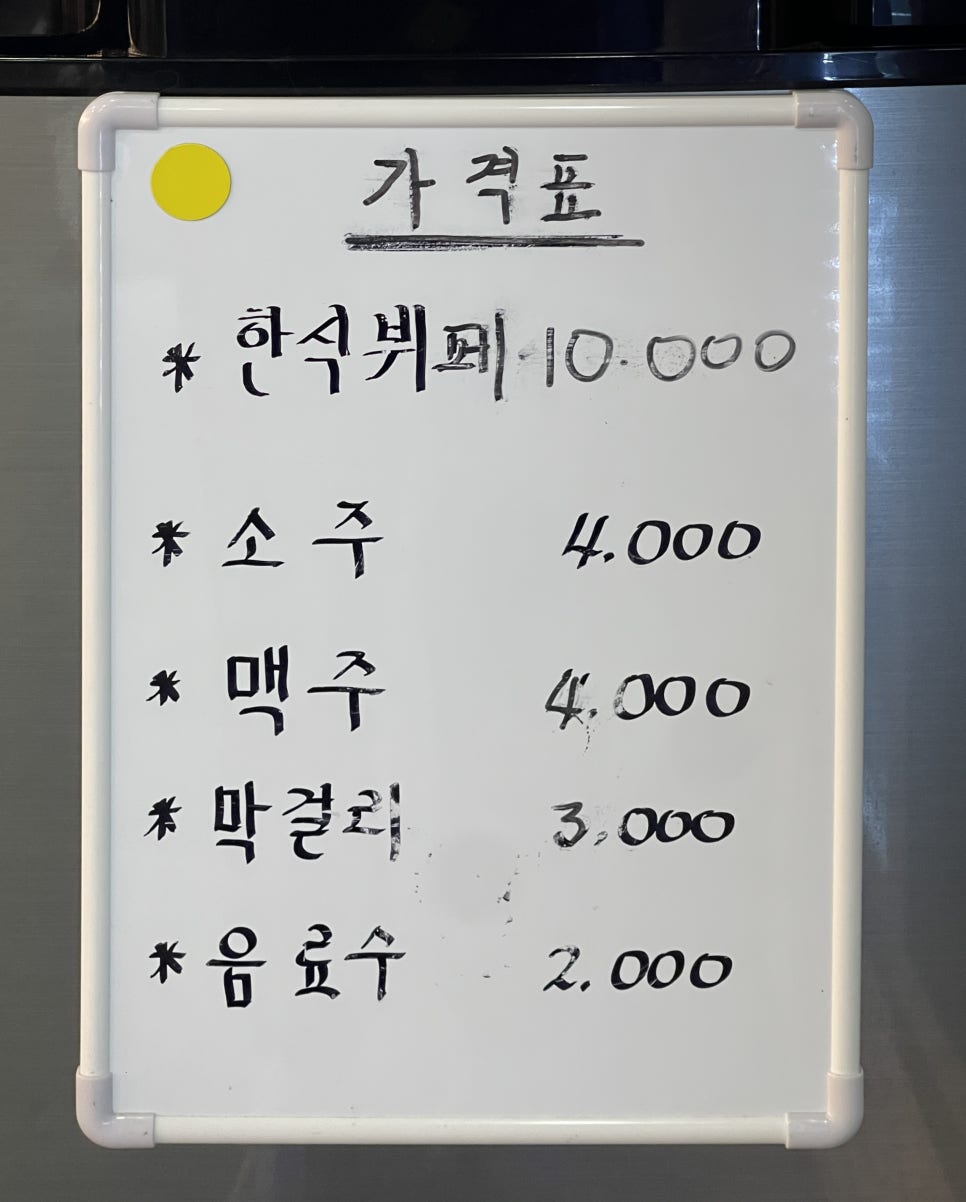 가격표
* 한식뷔페 10.000
* 소주 4.000
* 맥주 4.000
* 막걸리 3.000
* 음료수 2.000